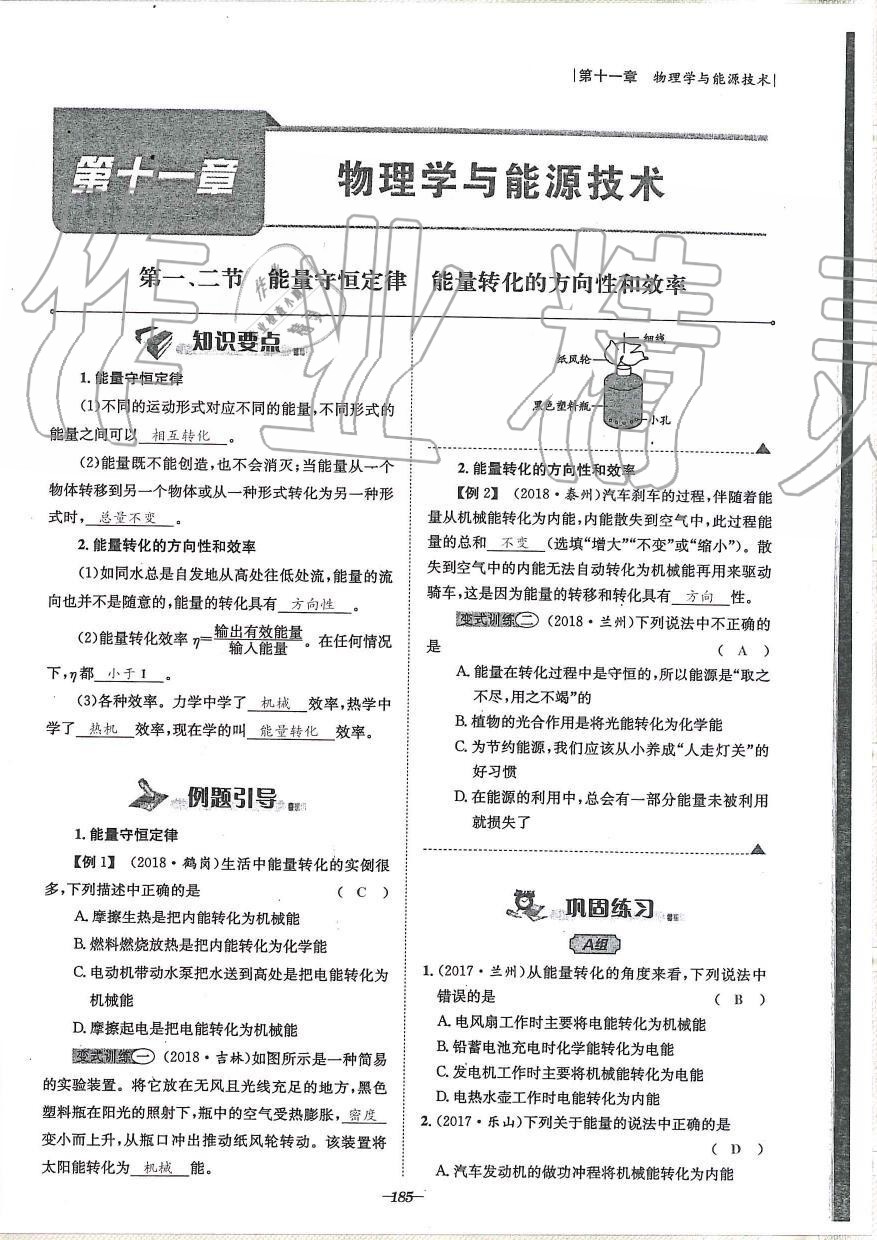 第十一章 物理学与能源技术
第十一章
物理学与能源技术
第一、二节 能量守恒定律 能量转化的方向性和效率
知识要点
1. 能量守恒定律
(1)不同的运动形式对应不同的能量,不同形式的
能量之间可以 相互转化 。
(2)能量既不能创造,也不会消灭;当能量从一个
物体转移到另一个物体或从一种形式转化为另一种形
式时, 总量不变 。
2. 能量转化的方向性和效率
(1)如同水总是自发地从高处往低处流,能量的流
向也并不是随意的,能量的转化具有 方向性 。
(2)能量转化效率 η=输出有效能量/输入能量。在任何情况
下,η都 小于1 。
(3)各种效率。力学中学了 机械 效率,热学中
学了 热机 效率,现在学的叫 能量转化 效率。
例题引导
1. 能量守恒定律
【例1】 (2018·鹤岗)生活中能量转化的实例很
多,下列描述中正确的是 ( C )
A. 摩擦生热是把内能转化为机械能
B. 燃料燃烧放热是把内能转化为化学能
C. 电动机带动水泵把水送到高处是把电能转化为
机械能
D. 摩擦起电是把电能转化为机械能
变式训练一 (2018·吉林)如图所示是一种简易
的实验装置。将它放在无风且光线充足的地方,黑色
塑料瓶在阳光的照射下,瓶中的空气受热膨胀, 密度
变小而上升,从瓶口冲出推动纸风轮转动。该装置将
太阳能转化为 机械 能。
细线
纸风轮
黑色塑料瓶
小孔
2. 能量转化的方向性和效率
【例2】 (2018·泰州)汽车刹车的过程,伴随着能
量从机械能转化为内能,内能散失到空气中,此过程能
量的总和 不变 (选填“增大”“不变”或“缩小”)。散
失到空气中的内能无法自动转化为机械能再用来驱动
骑车,这是因为能量的转移和转化具有 方向 性。
变式训练二 (2018·兰州)下列说法中不正确的
是 ( A )
A. 能量在转化过程中是守恒的,所以能源是“取之
不尽,用之不竭”的
B. 植物的光合作用是将光能转化为化学能
C. 为节约能源,我们应该从小养成“人走灯关”的
好习惯
D. 在能源的利用中,总会有一部分能量未被利用
就损失了
巩固练习
A组
1. (2017·兰州)从能量转化的角度来看,下列说法中
错误的是 ( B )
A. 电风扇工作时主要将电能转化为机械能
B. 铅蓄电池充电时化学能转化为电能
C. 发电机工作时主要将机械能转化为电能
D. 电热水壶工作时电能转化为内能
2. (2017·乐山)下列关于能量的说法中正确的是
( D )
A. 汽车发动机的做功冲程将机械能转化为内能
—185—
作业精灵